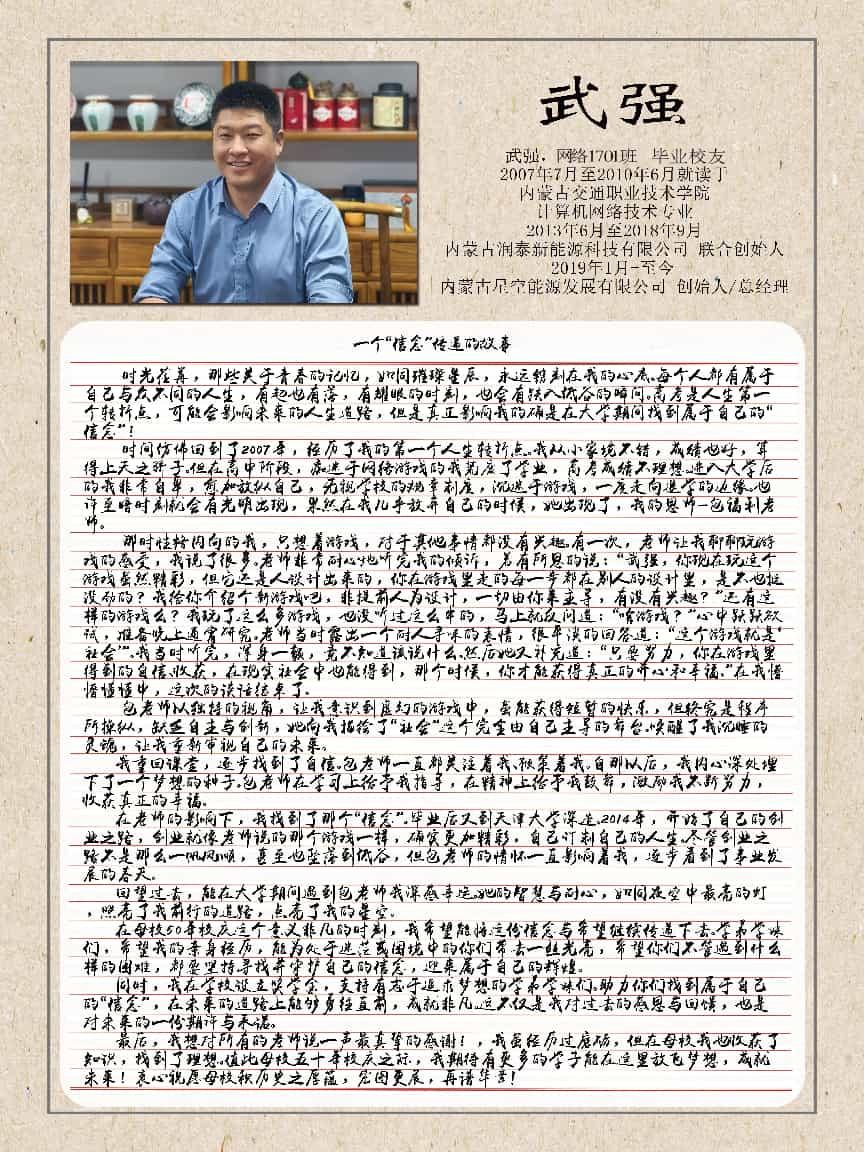 武强
武强，网络1701班 毕业校友
2007年7月至2010年6月就读于
内蒙古交通职业技术学院
计算机网络技术专业
2013年6月至2018年9月
内蒙古润泰新能源科技有限公司 联合创始人
2019年1月-至今
内蒙古星空能源发展有限公司 创始人/总经理
一个“信念”传递的故事
时光荏苒，那些关于青春的记忆，如同璀璨星辰，永远镌刻在我的心底。每个人都有属于
自己与众不同的人生，有起也有落，有耀眼的时刻，也会有跌入低谷的瞬间。高考是人生第一
个转折点，可能会影响未来的人生道路，但是真正影响我的确是在大学期间找到属于自己的“
信念”！
时间仿佛回到了2007年，经历了我的第一个人生转折点。我从小家境不错，成绩也好，算
得上天之骄子。但在高中阶段，痴迷于网络游戏的我荒废了学业，高考成绩不理想。进入大学后
的我非常自卑，愈加放纵自己，无视学校的规章制度，沉迷于游戏，一度走向退学的边缘。也
许至暗时刻就会有光明出现，果然在我几乎放弃自己的时候，她出现了，我的恩师—包福利老
师。
那时性格内向的我，只想着游戏，对于其他事情都没有兴趣。有一次，老师让我聊聊玩游
戏的感受，我说了很多。老师非常耐心地听完我的倾诉，若有所思的说：“武强，你现在玩这个
游戏虽然精彩，但它还是人设计出来的，你在游戏里走的每一步都在别人的设计里，是不也挺
没劲的？我给你介绍个新游戏吧，非提前人为设计，一切由你来主导，有没有兴趣？”还有这
样的游戏么？我玩了这么多游戏，也没听过这么牛的，马上就反问道：“啥游戏？”心中跃跃欲
试，准备晚上通宵研究。老师当时露出一个耐人寻味的表情，很平淡的回答道：“这个游戏就是‘
社会’”。我当时听完，浑身一颤，竟不知道该说什么。然后她又补充道：“只要努力，你在游戏里
得到的自信、收获，在现实社会中也能得到，那个时候，你才能获得真正的开心和幸福。”在我懵
懵懂懂中，这次的谈话结束了。
包老师以独特的视角，让我意识到虚幻的游戏中，虽能获得短暂的快乐，但终究是程序
所操纵，缺乏自主与创新，她向我描绘了“社会”这个完全由自己主导的舞台。唤醒了我沉睡的
灵魂，让我重新审视自己的未来。
我重回课堂，逐步找到了自信。包老师一直都关注着我、鞭策着我。自那以后，我内心深处埋
下了一个梦想的种子。包老师在学习上给予我指导，在精神上给予我鼓舞，激励我不断努力，
收获真正的幸福。
在老师的影响下，我找到了那个“信念”。毕业后又到天津大学深造。2014年，开始了自己的创
业之路，创业就像老师说的那个游戏一样，确实更加精彩，自己订制自己的人生。尽管创业之
路不是那么一帆风顺，甚至也坠落到低谷，但包老师的情怀一直影响着我，逐步看到了事业发
展的春天。
回望过去，能在大学期间遇到包老师我深感幸运。她的智慧与耐心，如同夜空中最亮的灯
，照亮了我前行的道路，点亮了我的星空。
在母校50年校庆这个意义非凡的时刻，我希望能将这份信念与希望继续传递下去。学弟学妹
们，希望我的亲身经历，能为处于迷茫或困境中的你们带去一丝光亮，希望你们不管遇到什么
样的困难，都要坚持寻找并守护自己的信念，迎来属于自己的辉煌。
同时，我在学校设立奖学金，支持有志于追求梦想的学弟学妹们。助力你们找到属于自己
的“信念”，在未来的道路上能够勇往直前，成就非凡。这不仅是我对过去的感恩与回馈，也是
对未来的一份期许与承诺。
最后，我想对所有的老师说一声最真挚的感谢！，我虽经历过磨砺，但在母校我也收获了
知识，找到了理想。值此母校五十年校庆之际，我期待有更多的学子能在这里放飞梦想，成就
未来！衷心祝愿母校积历史之厚蕴，宏图更展，再谱华章！